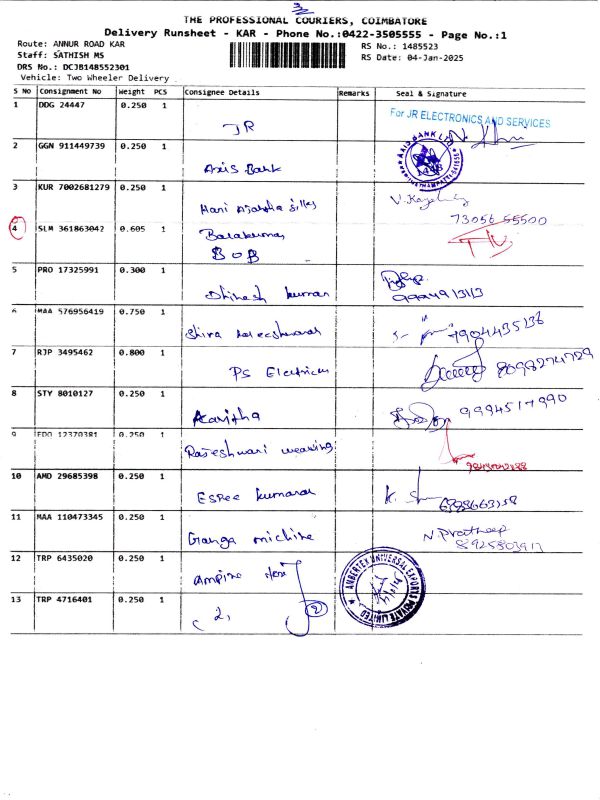 THE PROFESSIONAL COURIERS, COIMBATORE
Delivery Runsheet - KAR - Phone No.:0422-3505555 - Page No.:1
Route: ANNUR ROAD KAR
Staff: SATHISH MS
DRS No.: DCJB148552301
Vehicle: Two Wheeler Delivery
RS No.: 1485523
RS Date: 04-Jan-2025
S No Consignment No Weight PCS Consignee Details Remarks Seal & Signature
1 DDG 24447 0.250 1 JR For JR ELECTRONICS AND SERVICES
2 GGN 911449739 0.250 1 Axis Bank AXIS BANK LTD
3 KUR 7002681279 0.250 1 Hari 73056 55500
4 SLM 361863042 0.605 1 Balakumar
BOB
5 PRO 17325991 0.300 1 Dhinesh kumar
6 MAA 576956419 0.750 1 Shiva 7904435236
7 RJP 3495462 0.800 1 PS Electrical 8098274729
8 STY 8010127 0.250 1 Kavitha 9994517990
9 EDO 12370381 0.250 1 Rajeshwari weaving
10 AMD 29685398 0.250 1 Esree kumaran
11 MAA 110473345 0.250 1 Ganga michine N. Pratheep
8925803917
12 TRP 6435020 0.250 1 Ampire AMBERTEX UNIVERSAL EXPORTS PRIVATE LIMITED
13 TRP 4716401 0.250 1 2